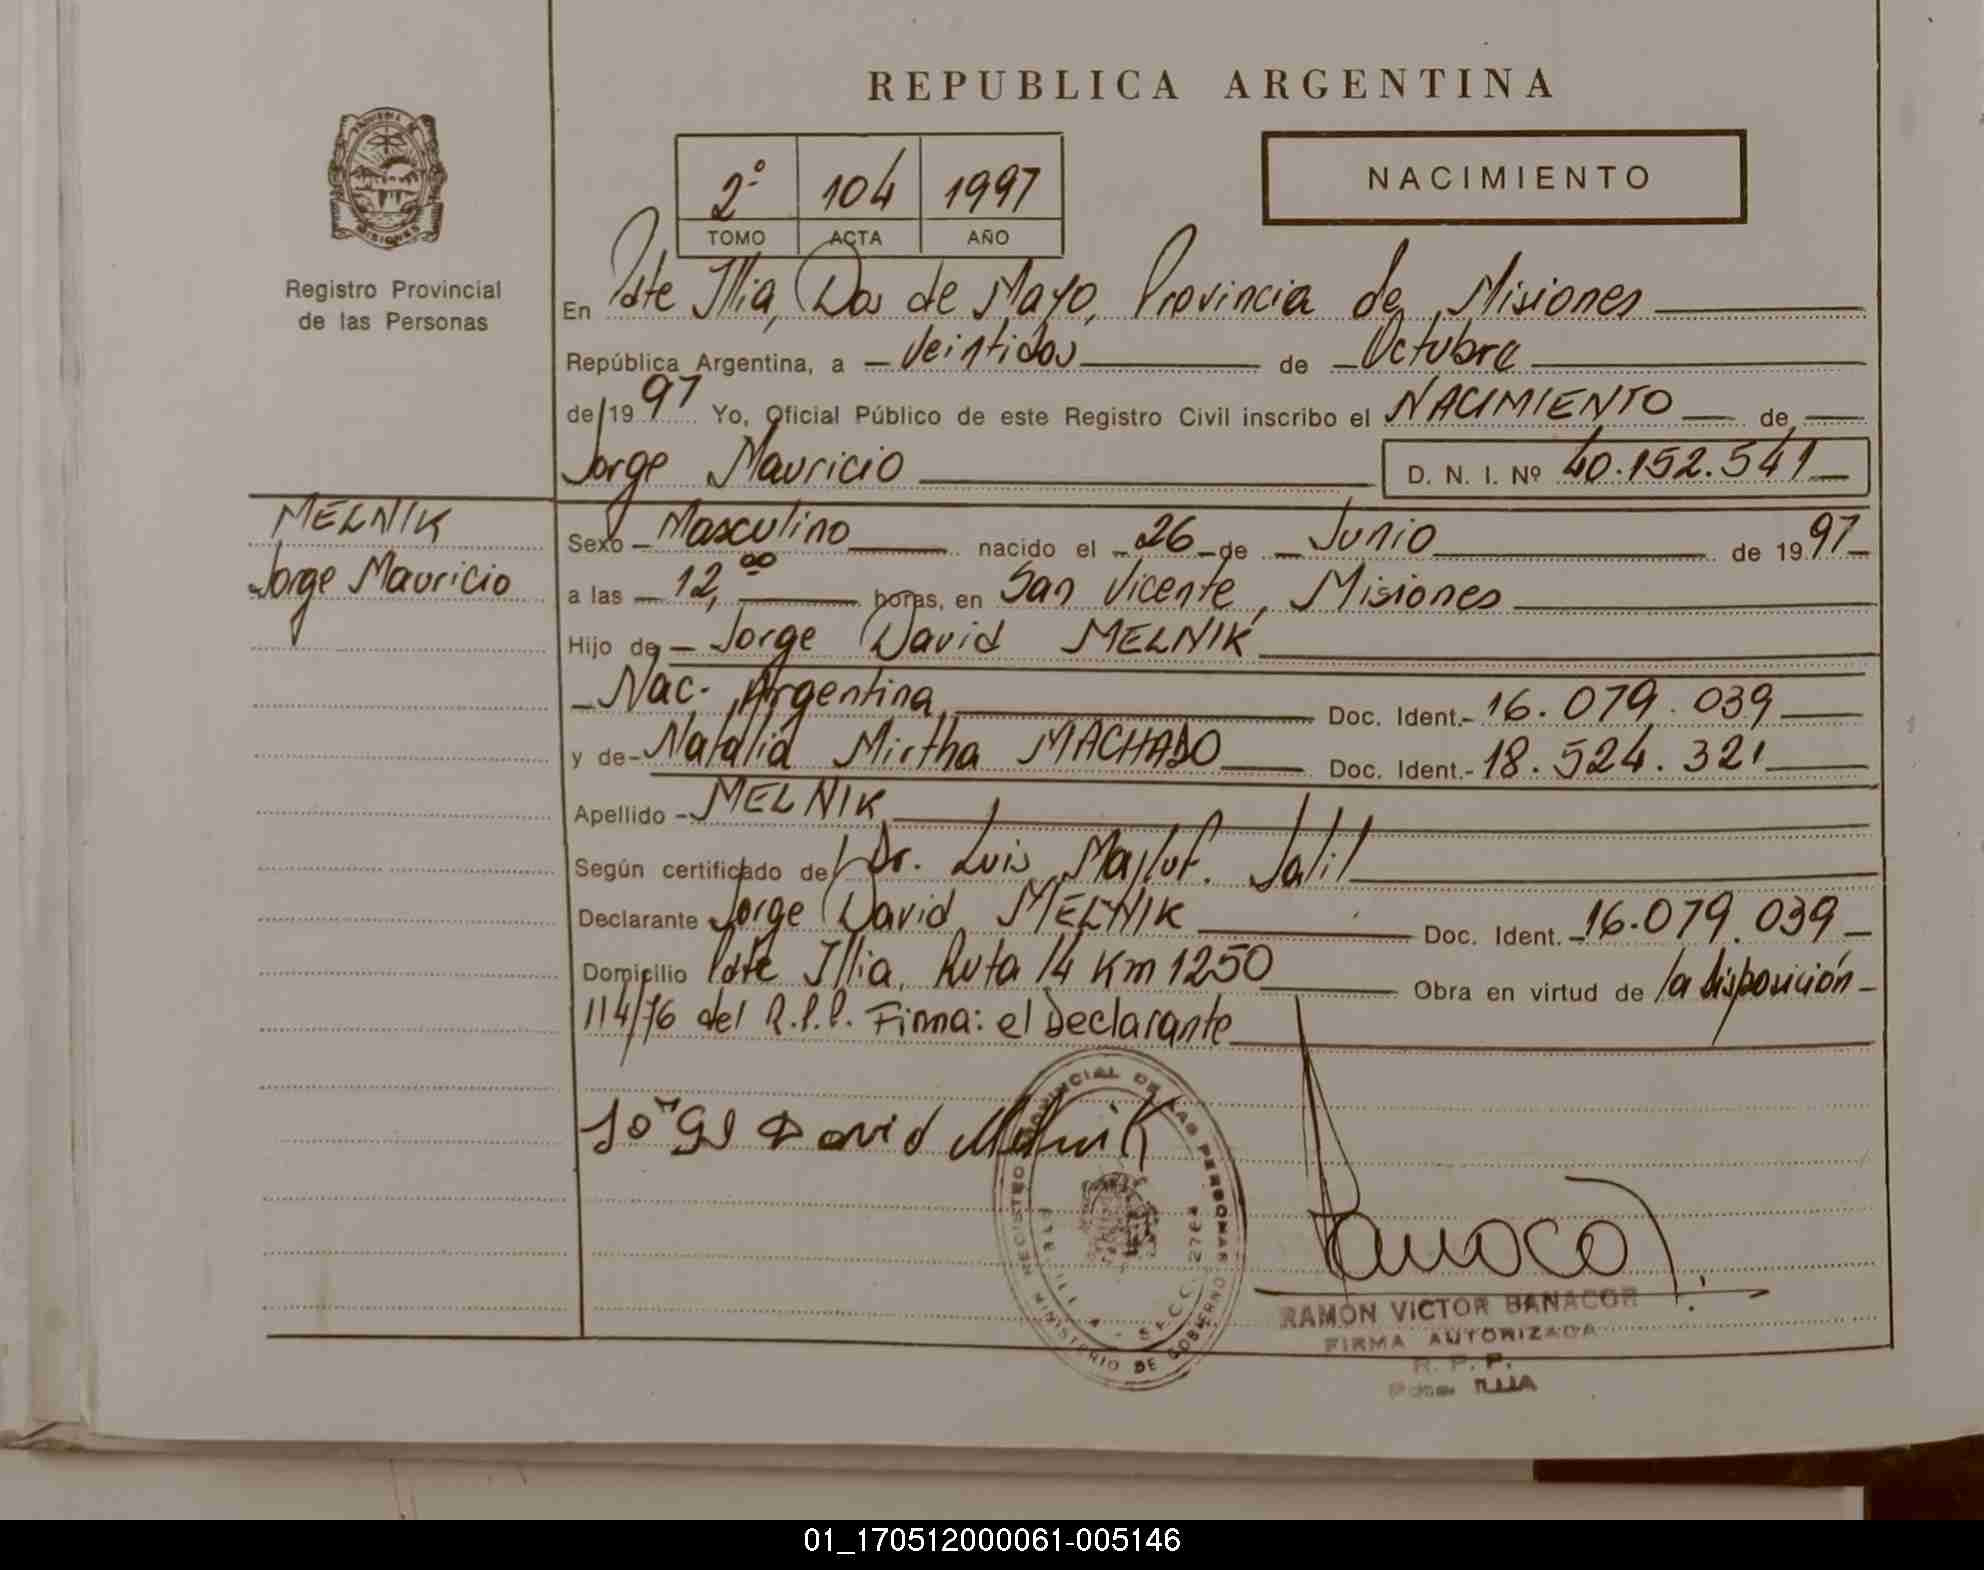 REPUBLICA ARGENTINA
NACIMIENTO
2º 104 1997
TOMO ACTA AÑO
PROVINCIA DE
MISIONES
Registro Provincial
de las Personas
En Pdte Illia, Dos de Mayo, Provincia de Misiones
República Argentina, a - veintidos de - Octubre
de 1997 Yo, Oficial Público de este Registro Civil inscribo el NACIMIENTO de
Jorge Mauricio D. N. I. Nº 40.152.541
MELNIK
Jorge Mauricio
Sexo - Masculino nacido el - 26 - de - Junio de 1997
a las - 12,00 horas, en San Vicente, Misiones
Hijo de - Jorge David MELNIK
- Nac. Argentina Doc. Ident.- 16.079.039
y de - Natalia Mirtha MACHADO Doc. Ident.- 18.524.321
Apellido - MELNIK
Según certificado de Dr. Luis Majluf. Jalil
Declarante Jorge David MELNIK Doc. Ident. - 16.079.039
Domicilio Pdte Illia, Ruta 14 Km 1250 Obra en virtud de la disposición
114/76 del R.P.P. Firma: el Declarante
Jorge David Melnik
REGISTRO PROVINCIAL DE LAS PERSONAS
MINISTERIO DE GOBIERNO
RAMON VICTOR BANACOR
FIRMA AUTORIZADA
R. P. P.
01_170512000061-005146